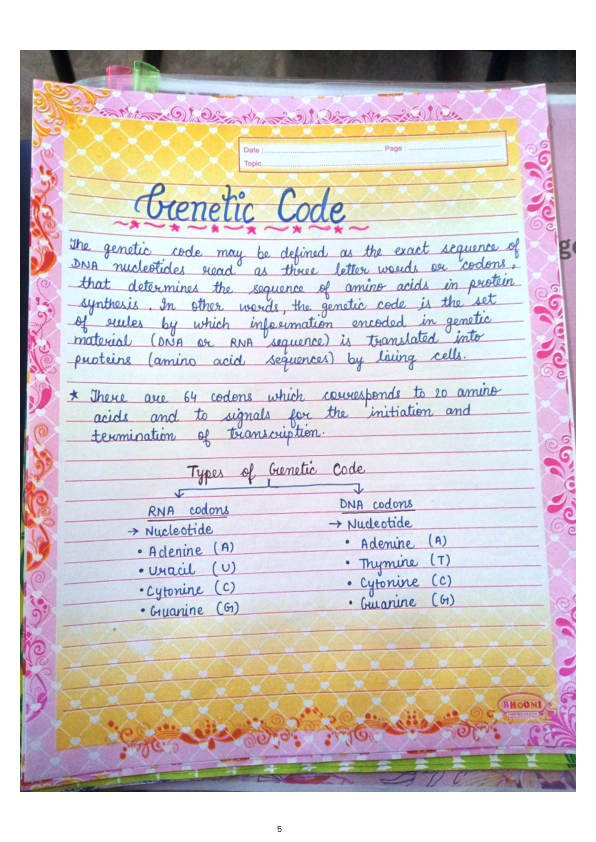 Date : Page :
Topic
Genetic Code
The genetic code may be defined as the exact sequence of
DNA nucleotides read as three letter words or codons,
that determines the sequence of amino acids in protein
synthesis. In other words, the genetic code is the set
of rules by which information encoded in genetic
material (DNA or RNA sequence) is translated into
proteins (amino acid sequences) by living cells.
★ There are 64 codons which corresponds to 20 amino
acids and to signals for the initiation and
termination of transcription.
Types of Genetic Code
RNA codons
→ Nucleotide
• Adenine (A)
• Uracil (U)
• Cytonine (C)
• Guanine (G)
DNA codons
→ Nucleotide
• Adenine (A)
• Thymine (T)
• Cytonine (C)
• Guanine (G)
BHOOMI
5